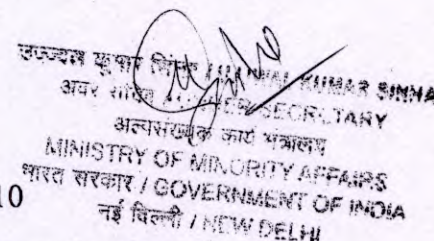 उज्ज्वल कुमार सिन्हा / UJJWAL KUMAR SINHA
अवर सचिव / UNDER SECRETARY
अल्पसंख्यक कार्य मंत्रालय
MINISTRY OF MINORITY AFFAIRS
भारत सरकार / GOVERNMENT OF INDIA
10
नई दिल्ली / NEW DELHI